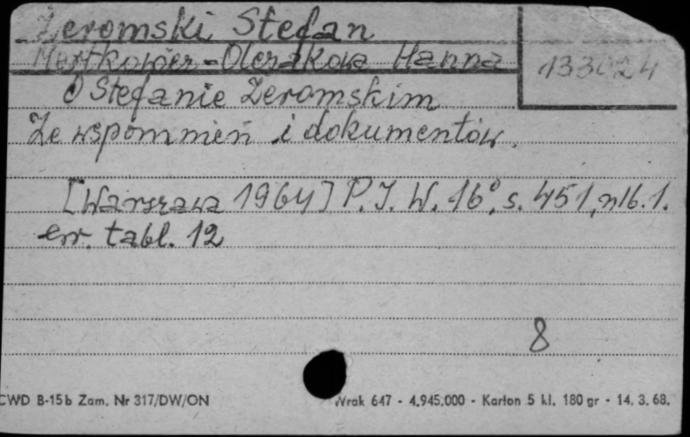 Żeromski Stefan
Mortkowicz-Olczakowa Hanna
133024
O Stefanie Żeromskim
Ze wspomnień i dokumentów.
[Warszawa 1964] P.I.W. 16°, s. 451, nlb. 1.
err. tabl. 12
8
CWD B-15b Zam. Nr 317/DW/ON
Wrak 647 - 4.945.000 - Karton 5 kl. 180 gr - 14. 3. 68.